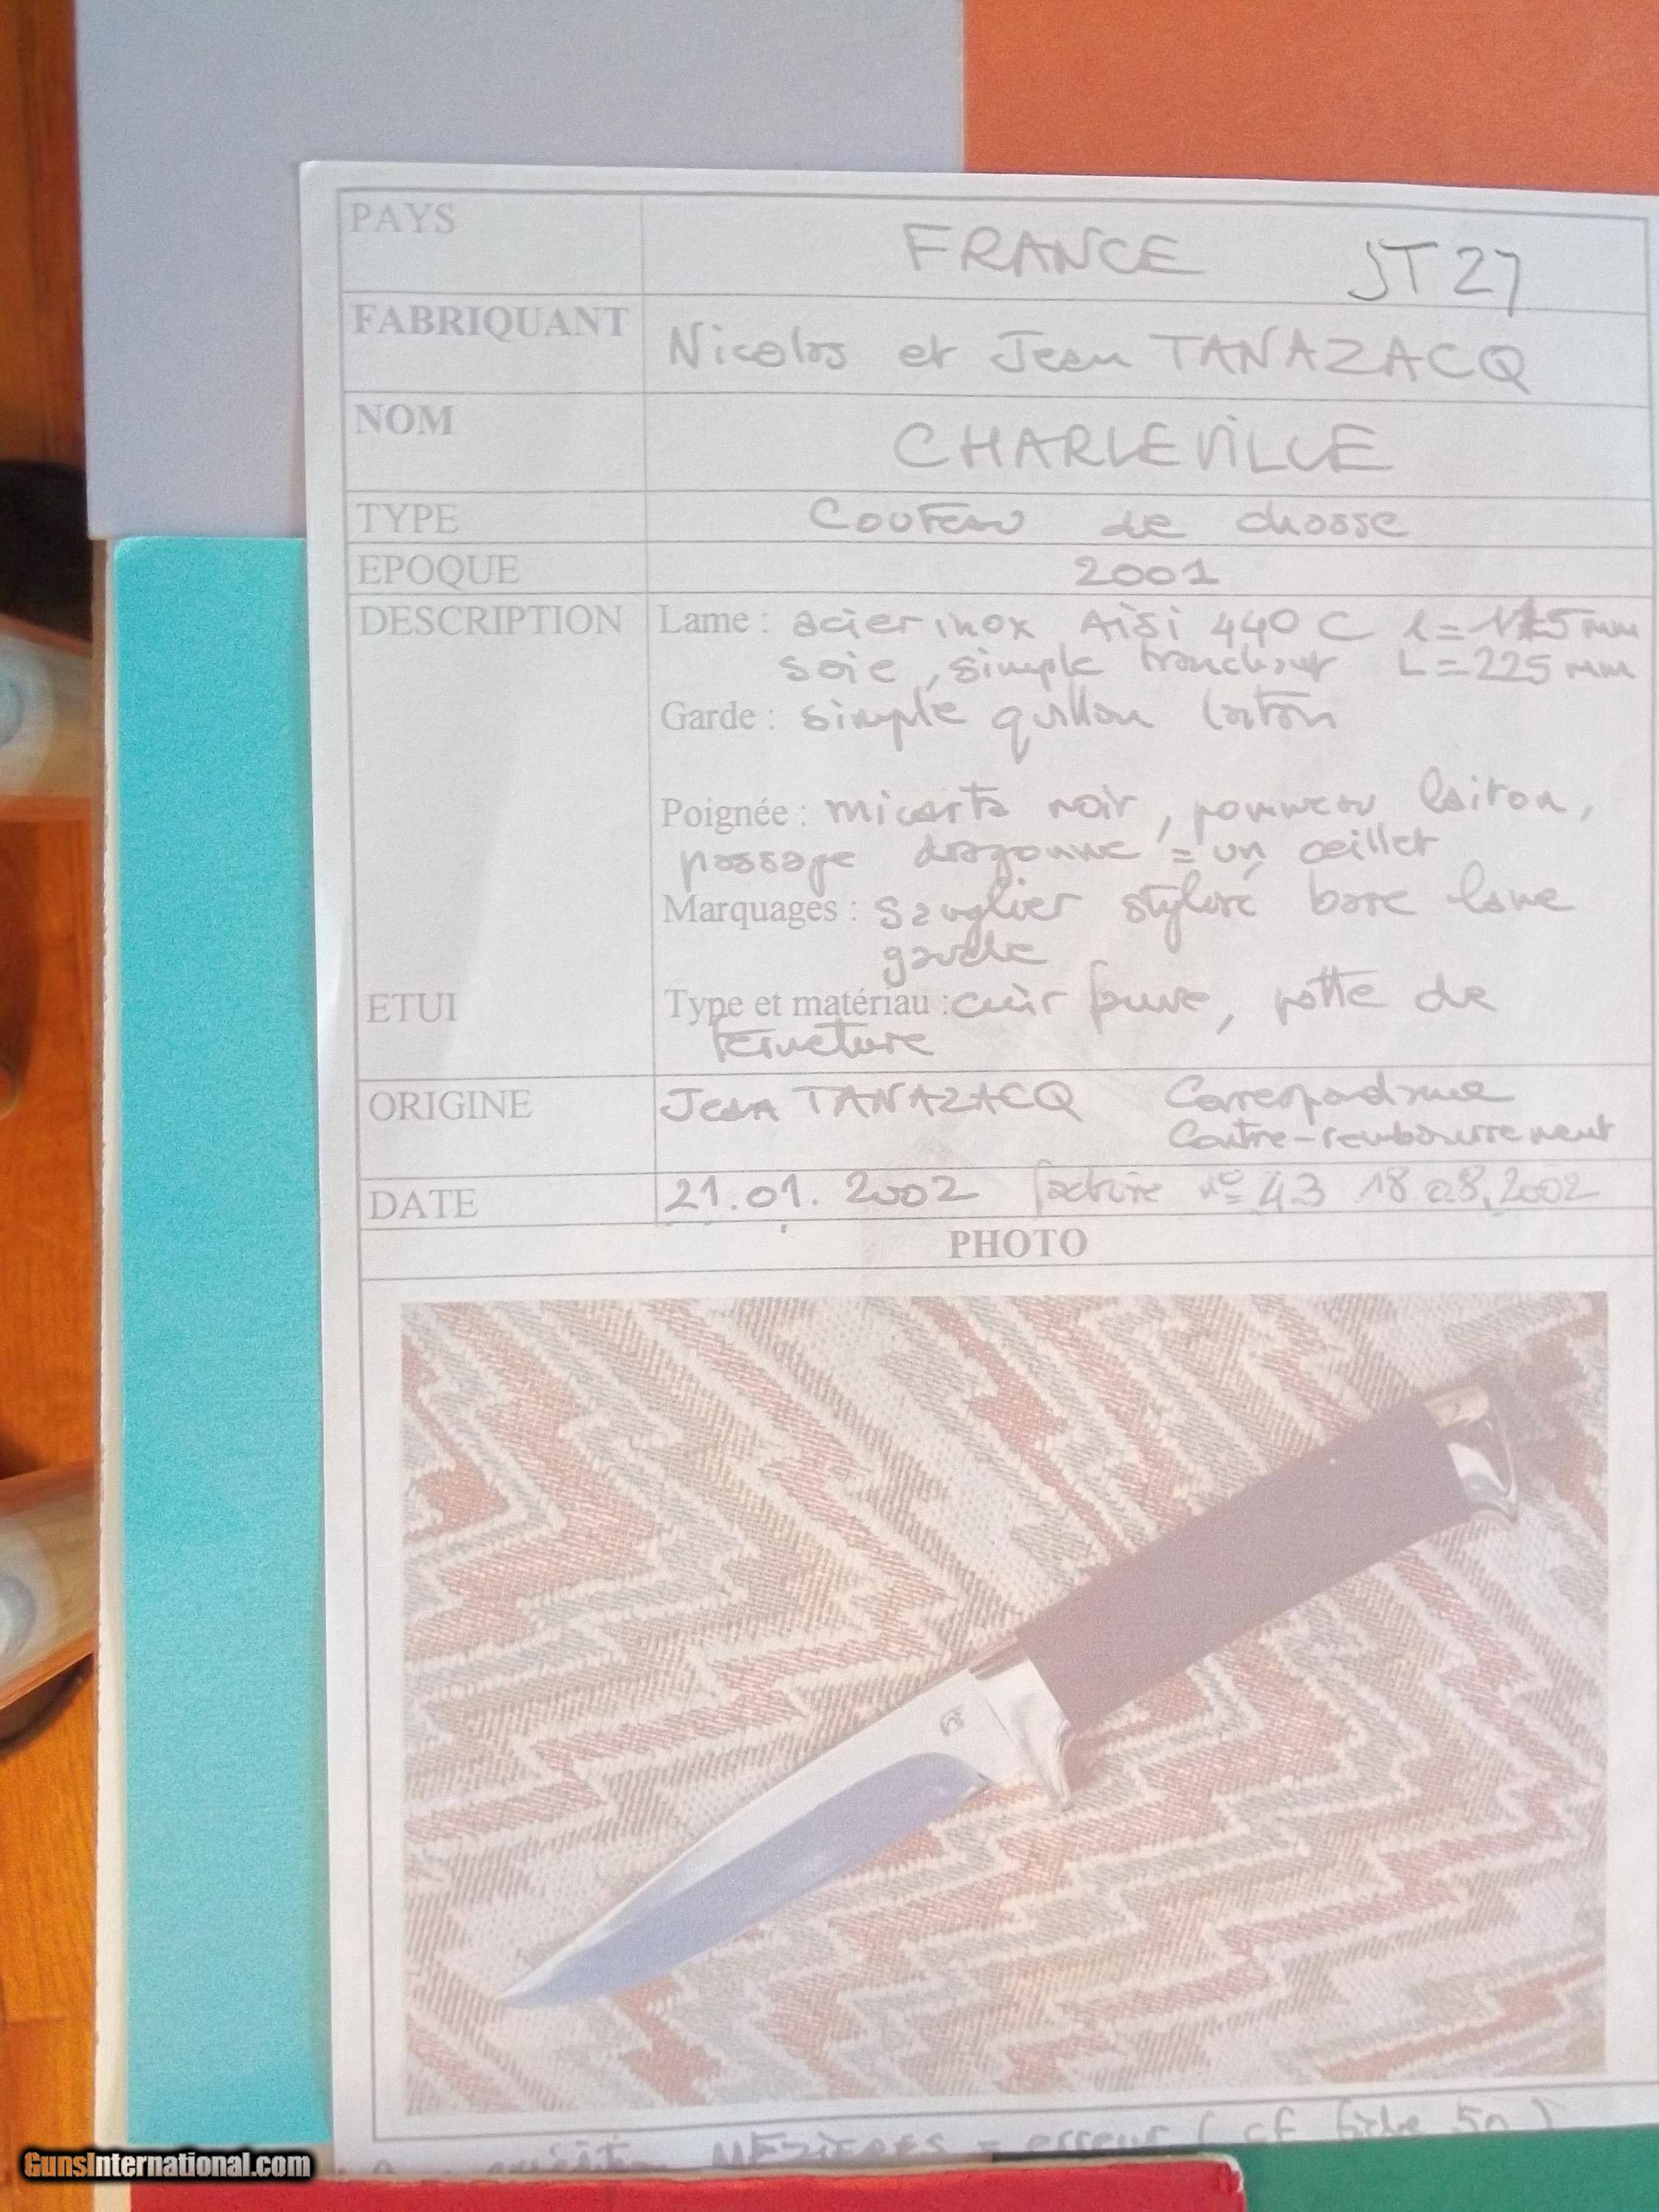 PAYS FRANCE JT27
FABRIQUANT Nicolas et Jean TANAZACQ
NOM CHARLEVILLE
TYPE Couteau de chasse
EPOQUE 2001
DESCRIPTION Lame : acier inox AiSi 440 C l = mm
soie, simple tranchant L = 225 mm
Garde : simple quillon laiton
Poignée : micarta noir, pommeau laiton,
passage dragonne = un œillet
Marquages : sanglier stylisé base lame
garde
ETUI Type et matériau : cuir fauve, patte de
fermeture
ORIGINE Jean TANAZACQ Correspondance
Contre-remboursement
DATE 21.01.2002 facture n° 43 18 08.2002
PHOTO
MEZIERES = erreur (cf fiche 50)
GunsInternational.com